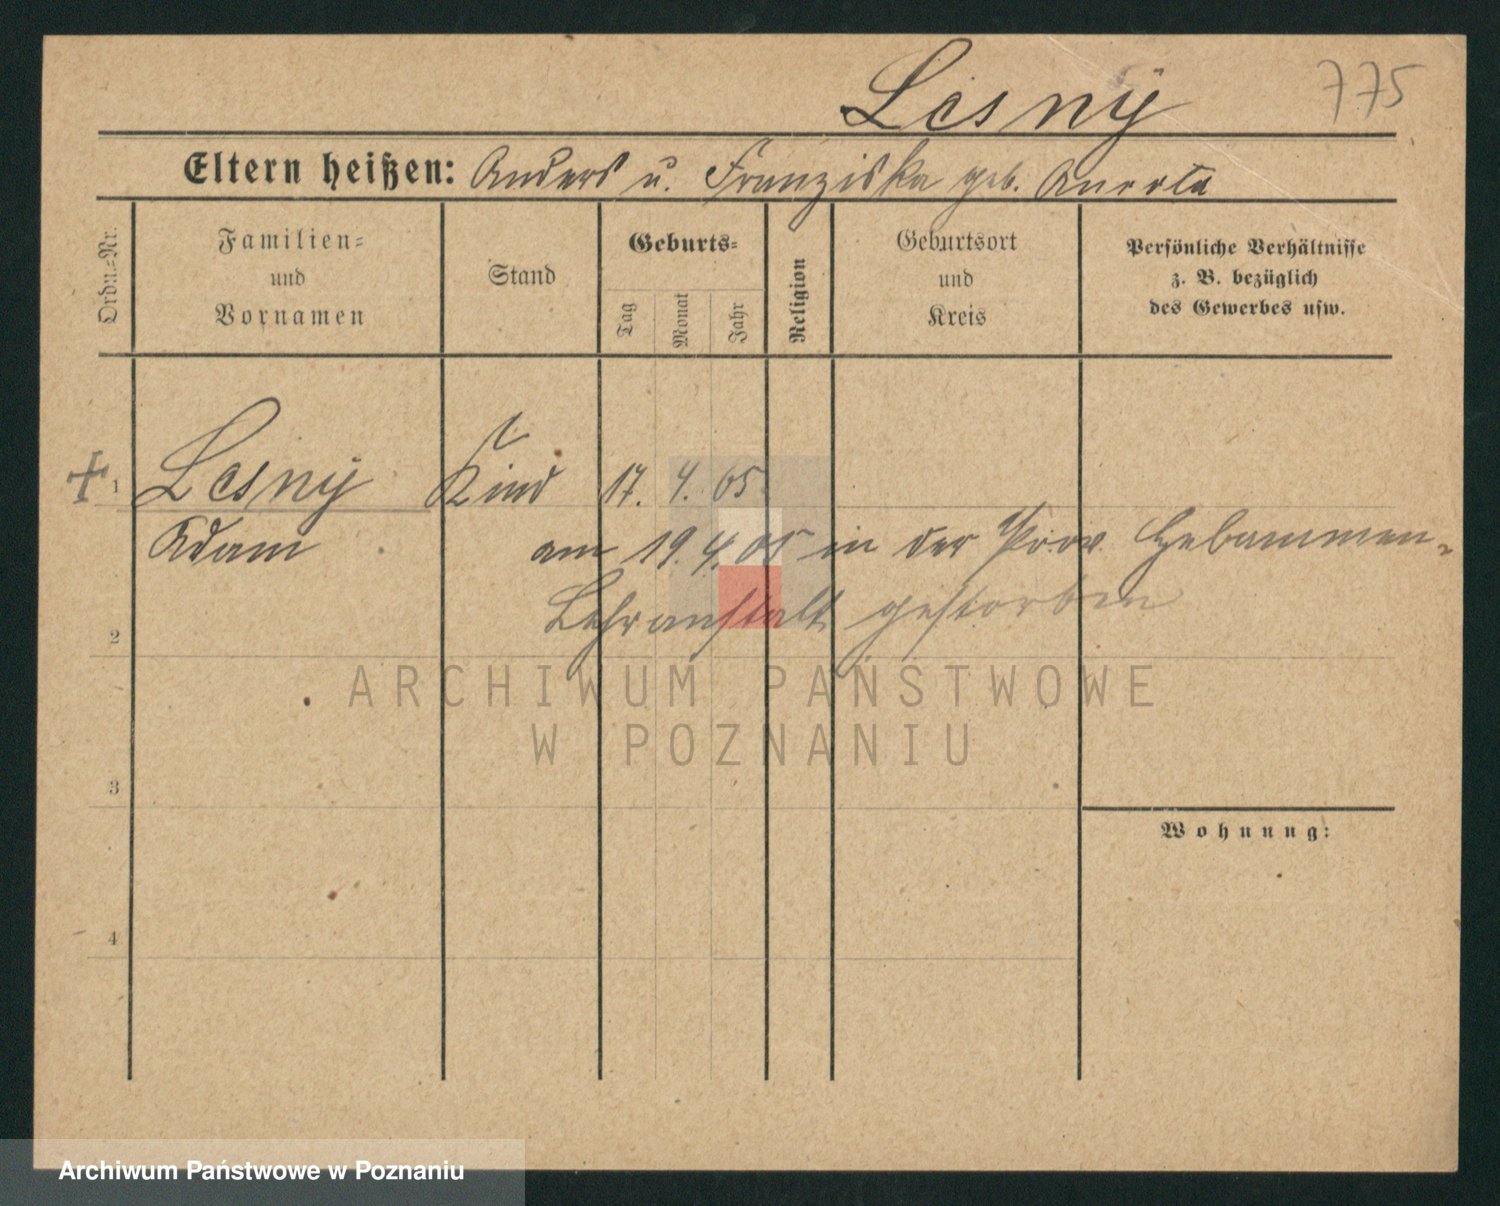 Lesny 775
Eltern heißen: Anders u. Franziska geb.
Ordn.-Nr.
Familien-
und
Vornamen
Stand
Geburts-
Tag
Monat
Jahr
Religion
Geburtsort
und
Kreis
Persönliche Verhältnisse
z. B. bezüglich
des Gewerbes usw.
1 Lesny Kind 17. 4. 05
Adam am 19. 4. 05 in der Prov. Hebammen-
Lehranstalt gestorben
2
ARCHIWUM PAŃSTWOWE
W POZNANIU
3
Wohnung:
4
Archiwum Państwowe w Poznaniu